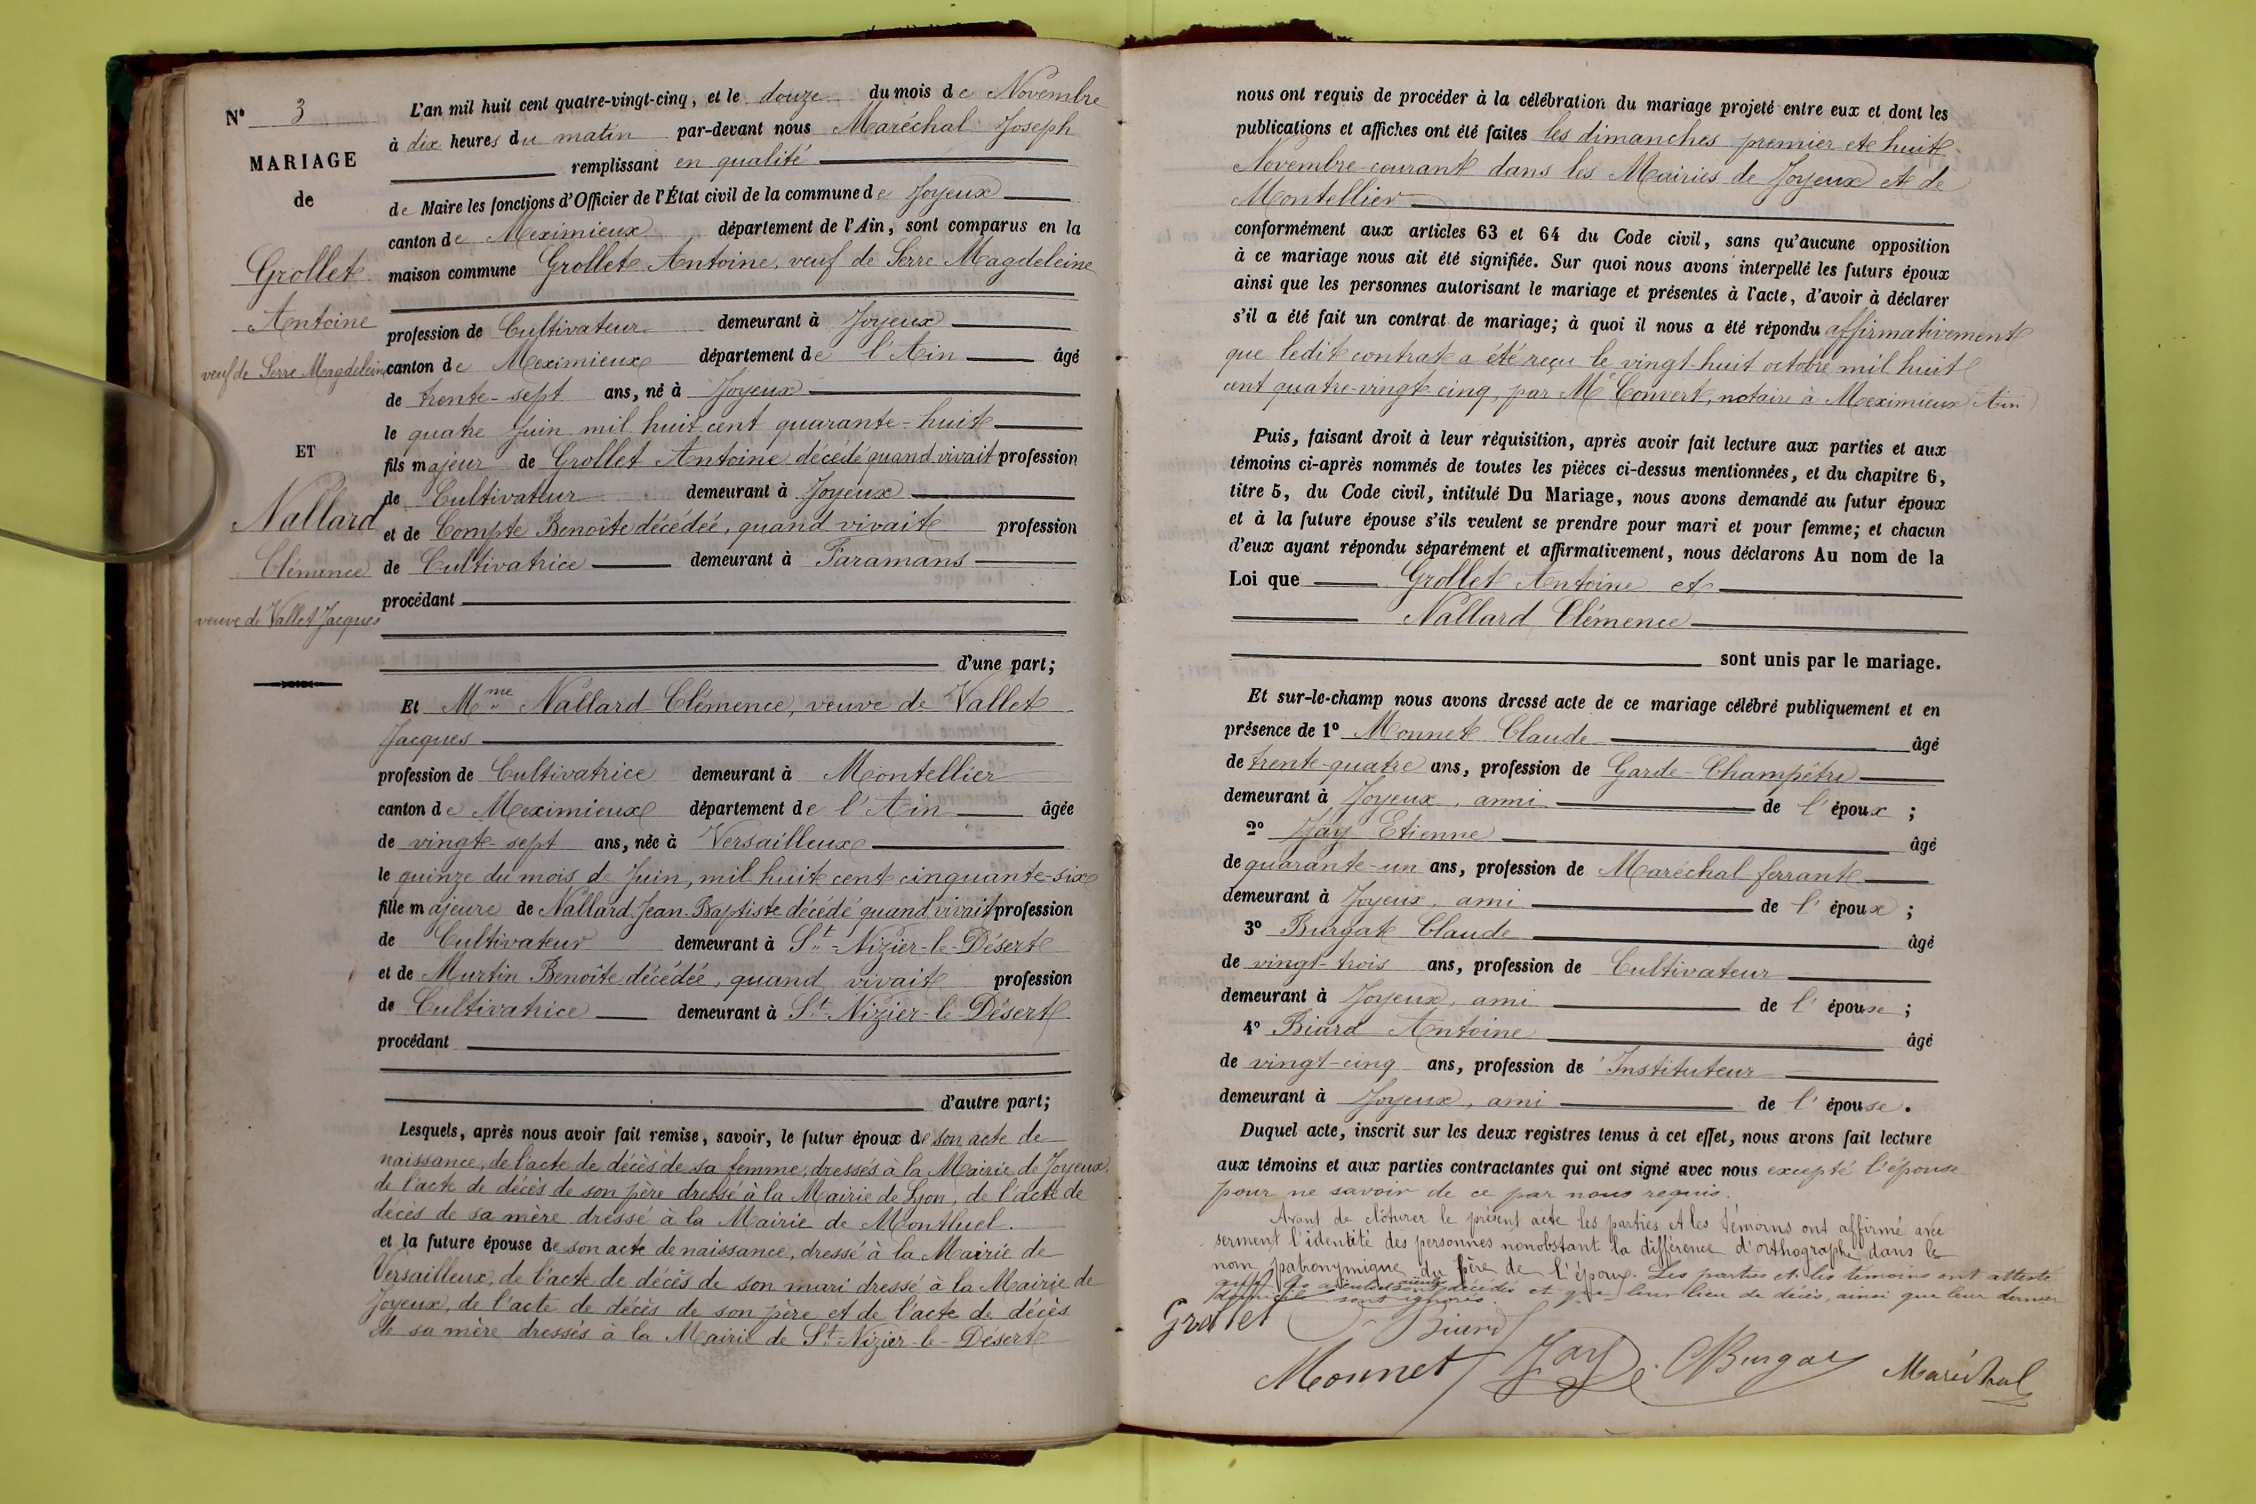 N° 3
MARIAGE
de
Grollet
Antoine
veuf de Serre Magdeleine
ET
Nallard
Clémence
veuve de Vallet Jacques
L'an mil huit cent quatre-vingt-cinq, et le douze du mois de Novembre
à dix heures du matin par-devant nous Maréchal Joseph
remplissant en qualité
de Maire les fonctions d'Officier de l'État civil de la commune de Joyeux
canton de Meximieux département de l'Ain, sont comparus en la
maison commune Grollet Antoine, veuf de Serre Magdeleine
profession de Cultivateur demeurant à Joyeux
canton de Meximieux département de l'Ain âgé
de trente-sept ans, né à Joyeux
le quatre Juin mil huit cent quarante-huit
fils majeur de Grollet Antoine décédé quand vivait profession
de Cultivateur demeurant à Joyeux
et de Compte Benoîte décédée, quand vivait profession
de Cultivatrice demeurant à Faramans
procédant
d'une part;
Et Mme Nallard Clémence, veuve de Vallet
Jacques
profession de Cultivatrice demeurant à Montellier
canton de Meximieux département de l'Ain âgée
de vingt-sept ans, née à Versailleux
le quinze du mois de Juin, mil huit cent cinquante-six
fille majeure de Nallard Jean-Baptiste décédé quand vivait profession
de Cultivateur demeurant à St-Nizier-le-Désert
et de Murtin Benoîte décédée, quand vivait profession
de Cultivatrice demeurant à St-Nizier-le-Désert
procédant
d'autre part;
Lesquels, après nous avoir fait remise, savoir, le futur époux de son acte de
naissance, de l'acte de décès de sa femme, dressés à la Mairie de Joyeux,
de l'acte de décès de son père dressé à la Mairie de Lyon, de l'acte de
décès de sa mère dressé à la Mairie de Montluel.
et la future épouse de son acte de naissance, dressé à la Mairie de
Versailleux, de l'acte de décès de son mari dressé à la Mairie de
Joyeux, de l'acte de décès de son père et de l'acte de décès
de sa mère dressés à la Mairie de St-Nizier-le-Désert
nous ont requis de procéder à la célébration du mariage projeté entre eux et dont les
publications et affiches ont été faites les dimanches premier et huit
Novembre courant dans les Mairies de Joyeux et de
Montellier
conformément aux articles 63 et 64 du Code civil, sans qu'aucune opposition
à ce mariage nous ait été signifiée. Sur quoi nous avons interpellé les futurs époux
ainsi que les personnes autorisant le mariage et présentes à l'acte, d'avoir à déclarer
s'il a été fait un contrat de mariage; à quoi il nous a été répondu affirmativement
que ledit contrat a été reçu le vingt-huit octobre mil huit
cent quatre-vingt cinq, par Me Convert, notaire à Meximieux (Ain)
Puis, faisant droit à leur réquisition, après avoir fait lecture aux parties et aux
témoins ci-après nommés de toutes les pièces ci-dessus mentionnées, et du chapitre 6,
titre 5, du Code civil, intitulé Du Mariage, nous avons demandé au futur époux
et à la future épouse s'ils veulent se prendre pour mari et pour femme; et chacun
d'eux ayant répondu séparément et affirmativement, nous déclarons Au nom de la
Loi que Grollet Antoine et
Nallard Clémence
sont unis par le mariage.
Et sur-le-champ nous avons dressé acte de ce mariage célébré publiquement et en
présence de 1° Monnet Claude âgé
de trente-quatre ans, profession de Garde-Champêtre
demeurant à Joyeux, ami de l'époux ;
2° Jay Etienne âgé
de quarante-un ans, profession de Maréchal ferrant
demeurant à Joyeux, ami de l'époux ;
3° Burgat Claude âgé
de vingt-trois ans, profession de Cultivateur
demeurant à Joyeux, ami de l'épouse ;
4° Biard Antoine âgé
de vingt-cinq ans, profession de Instituteur
demeurant à Joyeux, ami de l'épouse.
Duquel acte, inscrit sur les deux registres tenus à cet effet, nous avons fait lecture
aux témoins et aux parties contractantes qui ont signé avec nous excepté l'épouse
pour ne savoir de ce par nous requis.
Avant de clôturer le présent acte les parties et les témoins ont affirmé avec
serment l'identité des personnes nonobstant la différence d'orthographe dans le
nom patronymique du père de l'époux. Les parties et les témoins ont attesté
que les aïeuls sont décédés et que leur lieu de décès, ainsi que leur dernier
domicile sont ignorés.
Grollet Biard
Monnet Jay C Burgat Maréchal